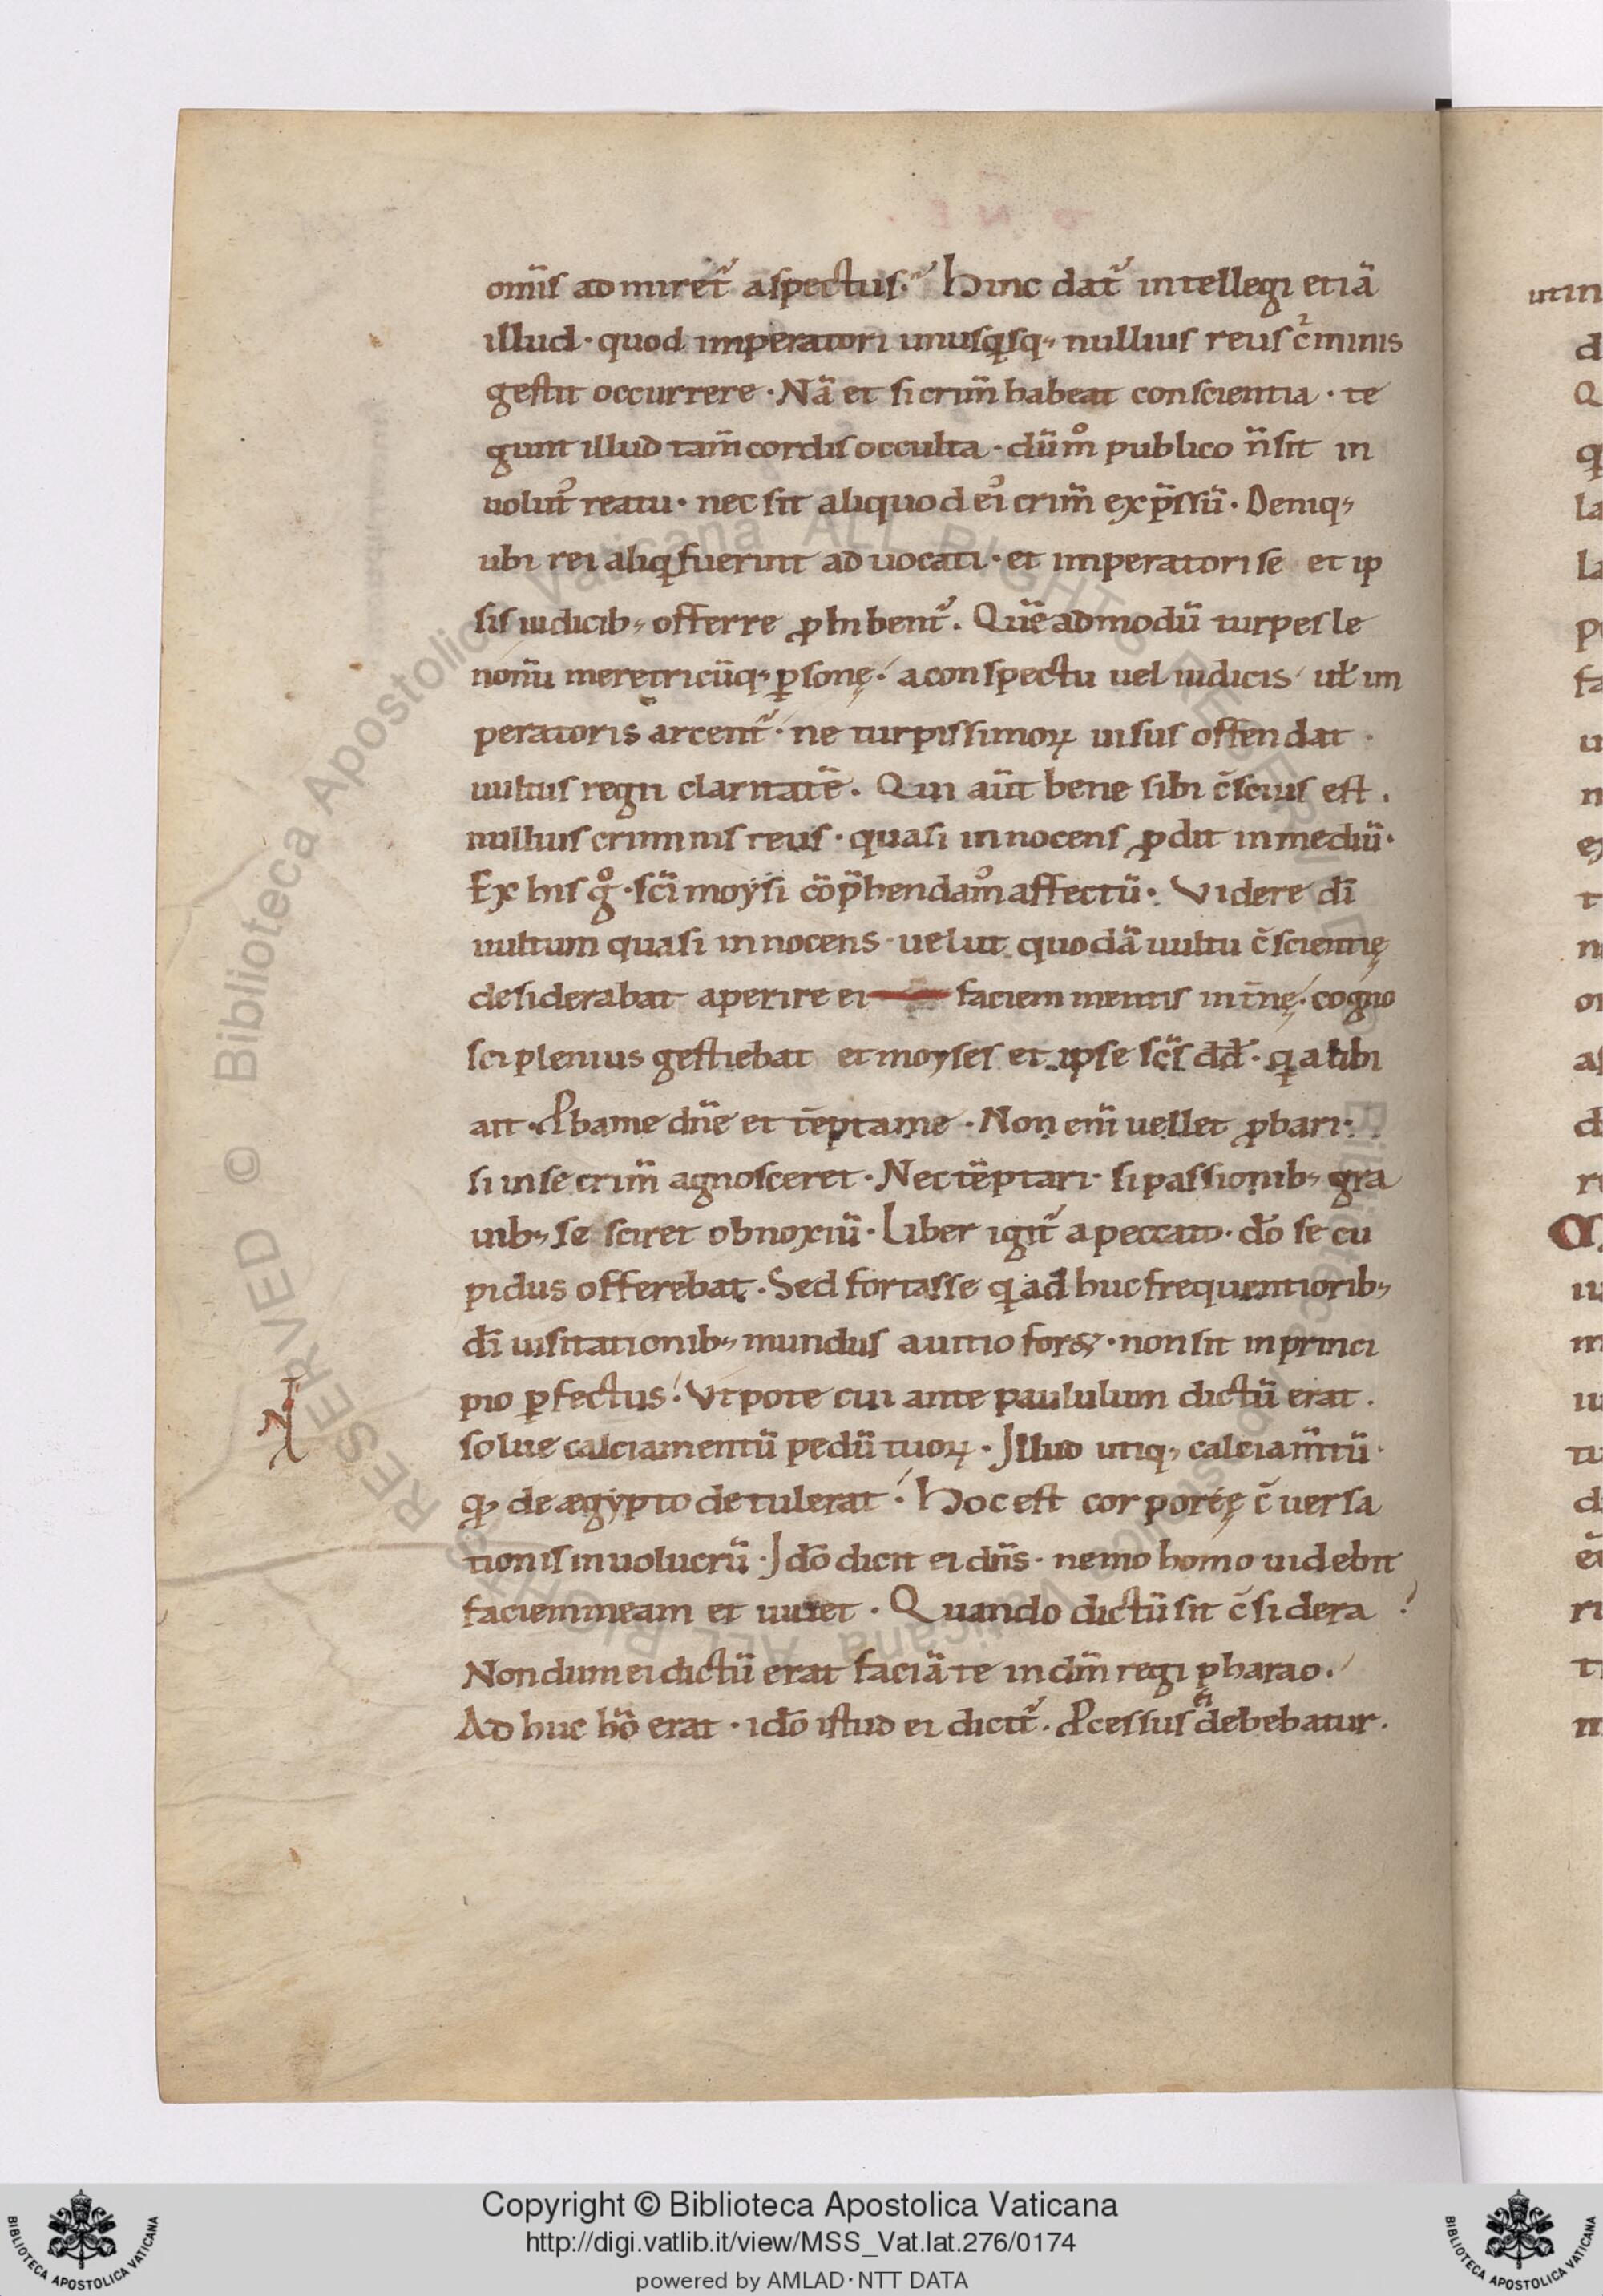 om̅is admiret᷑ aspectus. Hinc dat᷑ intellegi etiā
illud · quod imperatori unusqͥsq; nullius reus c̉minis
gestit occurrere · Nā et si crim̄ habeat conscientia · te
gunt illud tam̄ cordis occulta · dūm̊ publico n̄ sit in
uolut᷒ reatu · nec sit aliquod ei᷒ crim̄ exp̄ssū · Deniq;
ubi rei aliq fuerint aduocati · et imperatori se et ip
sis iudicib; offerre ꝓhibent᷑. Quēadmodū turpes le
nonū meretricūq; ꝑsonę · a conspectu uel iudicis ul̃ im
peratoris arcent᷑ · ne turpissimoꝝ uisus offendat ·
uultus regii claritatē. Qui aūt bene sibi c̄scius est.
nullius criminis reus · quasi innocens ꝓdit in mediū·
Ex his g̊ · sc̄i moysi cōp̄hendam᷒ affectū · Videre dī
uultum quasi innocens · uelut quodā uultu c̄scientię
desiderabat aperire ei faciem mentis int̄nę · cogno
sci plenius gestiebat et moyses et ipse sc̄s dd̄ · q a libi
ait · ꝓbame dn̄e et tēptame · Non eni̅ uellet ꝓbari·
si in se crim̄ agnosceret · Nec tēptari· si passionib; gra
uib; se sciret obnoxiū · Liber igit᷑ a peccato · dō se cu
pidus offerebat · Sed fortasse q adhuc frequentiorib;
dī uisitationib; mundus a uitio for& · non sit in princi
pio ꝑfectus · Vtpote cui ante paululum dictū erat.
solue calciamentū pedū tuoꝝ · Illud utiq; calciam̄tū·
q; de ægypto detulerat · Hoc est corporeę c̄uersa
tionis inuolucrū · Idō dicit ei dn̄s · nemo homo uidebit
faciem meam et uiuet · Quando dictū sit c̄sidera
Nondum ei dictū erat faciā te in dm̄ regi pharao.
Adhuc hō erat · idō istud ei dicit᷑. ꝓcessus ei debebatur.
utin
d
Q
q
la
la
fa
m
ex
t
d
Copyright © Biblioteca Apostolica Vaticana
http://digi.vatlib.it/view/MSS_Vat.lat.276/0174
powered by AMLAD·NTT DATA
BIBLIOTECA APOSTOLICA VATICANA
BIBLIOTECA APOSTOLICA VATICANA
© Biblioteca Apostolica Vaticana ALL RIGHTS RESERVED